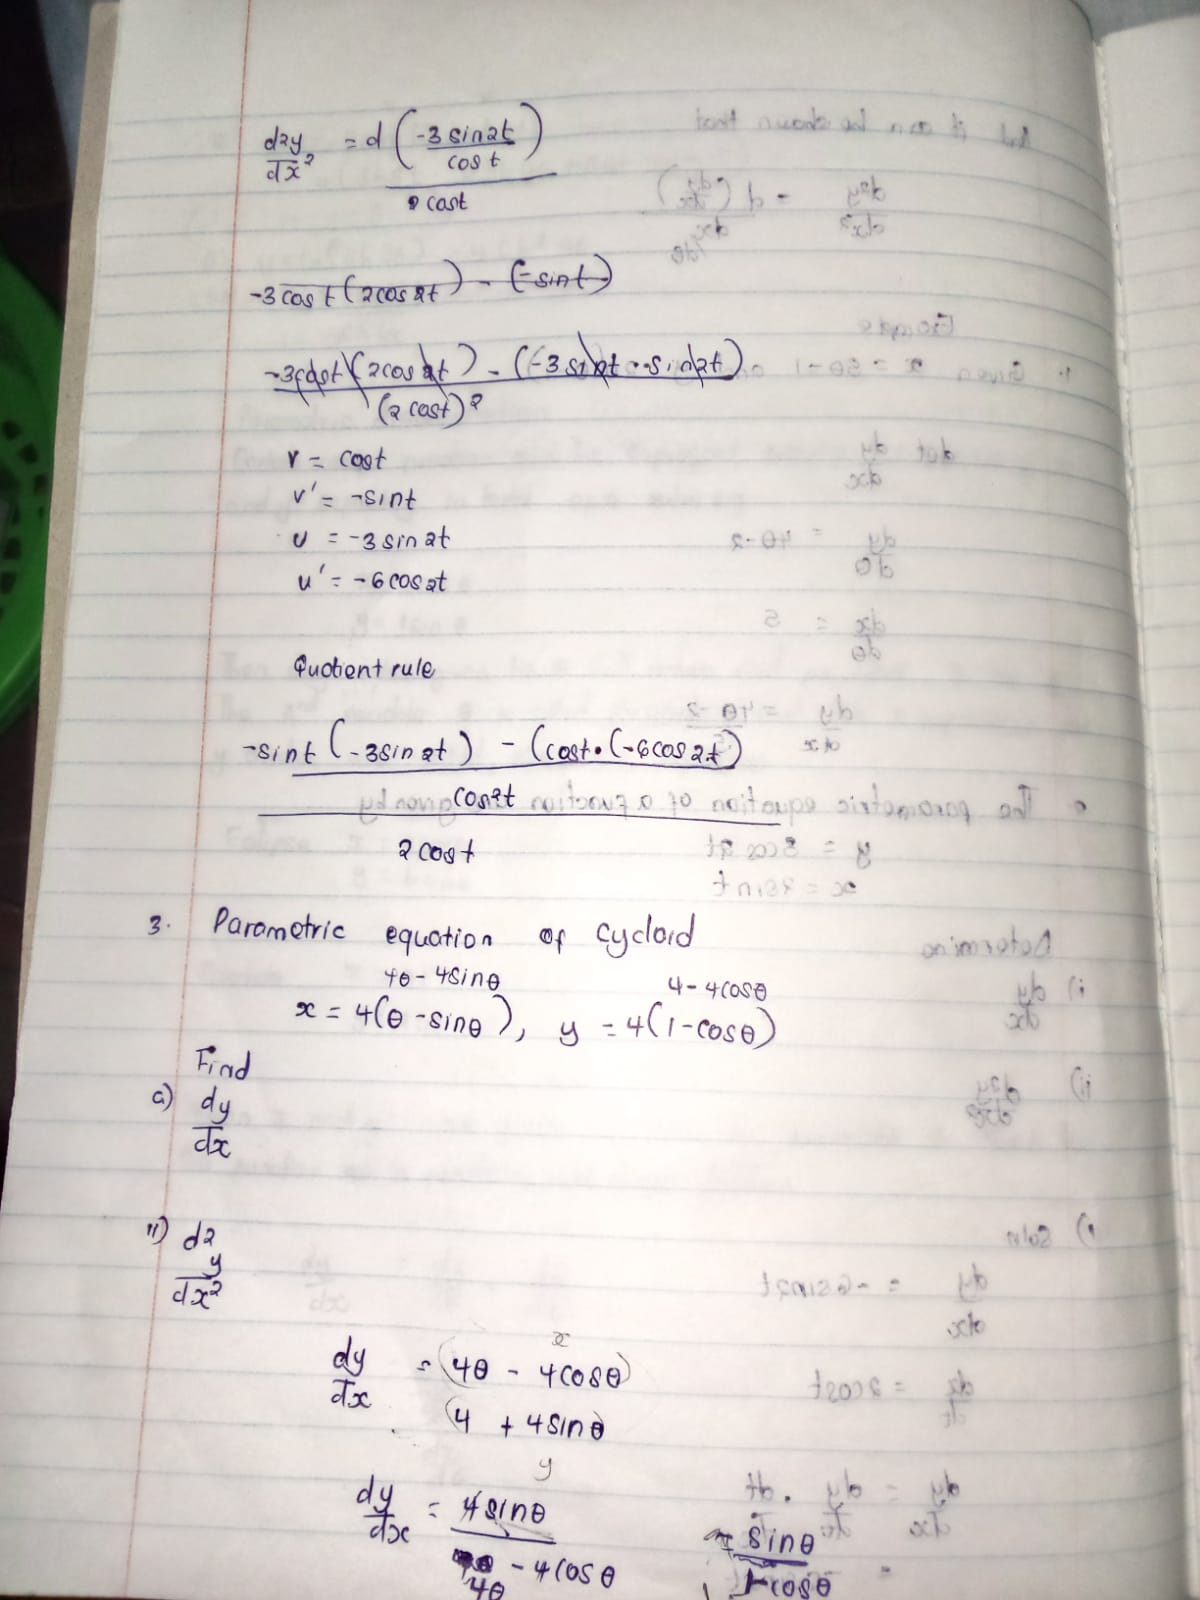 d2y/dx² = d (-3 sin2t / cos t) / 2 cost
-3 cos t (2 cos 2t) - (-sin t)
-3 cost (2 cos 2t) - (-3 sin 2t · -sin 2t)
(2 cost)²
v = cost
v' = -sint
u = -3 sin 2t
u' = -6 cos 2t
Quotient rule
-sint (-3 sin 2t) - (cost · (-6 cos 2t)
cos²t
2 cost
3. Parametric equation of cycloid
4θ - 4sinθ 4 - 4cosθ
x = 4(θ - sinθ), y = 4(1 - cosθ)
Find
a) dy/dx
11) d2y/dx²
x
dy/dx = (4θ - 4cosθ)
(4 + 4sinθ
y
dy/dx = 4sinθ / 4θ - 4cosθ = sinθ / 1-cosθ